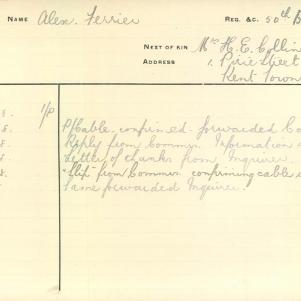 NAME Alex. Ferrier REG. &C. 50th B
NEXT OF KIN Mrs H. E. Collin
ADDRESS 1, Pirie Street
Kent Town
8. 1/P P/Cable confirmed forwarded C
8. Reply from Commn. Information
8. Letter of thanks from Inquirer.
8. "Slip" from Commn. confirming cable
Same forwarded Inquirer.